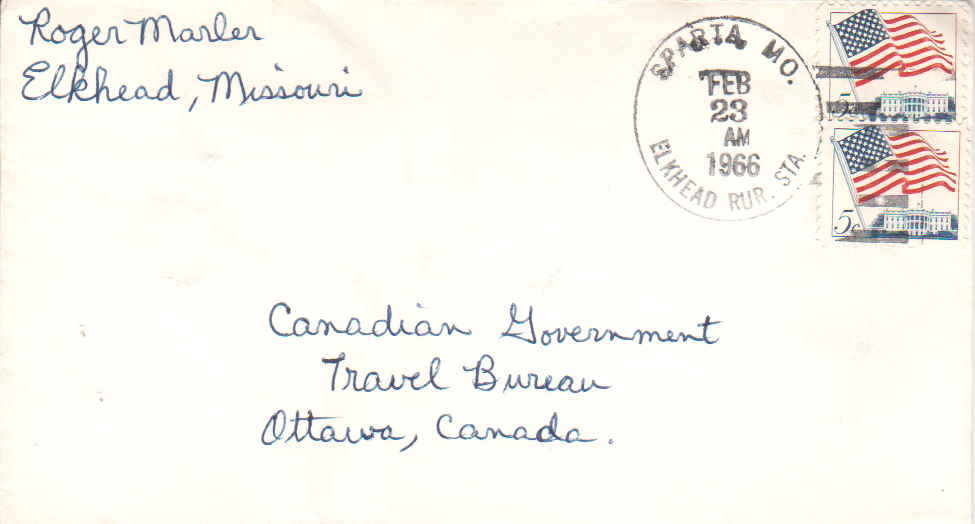 Roger Marler
Elkhead, Missouri
SPARTA, MO.
FEB
23
AM
1966
ELKHEAD RUR. STA.
5c
5c
Canadian Government
Travel Bureau
Ottawa, Canada.